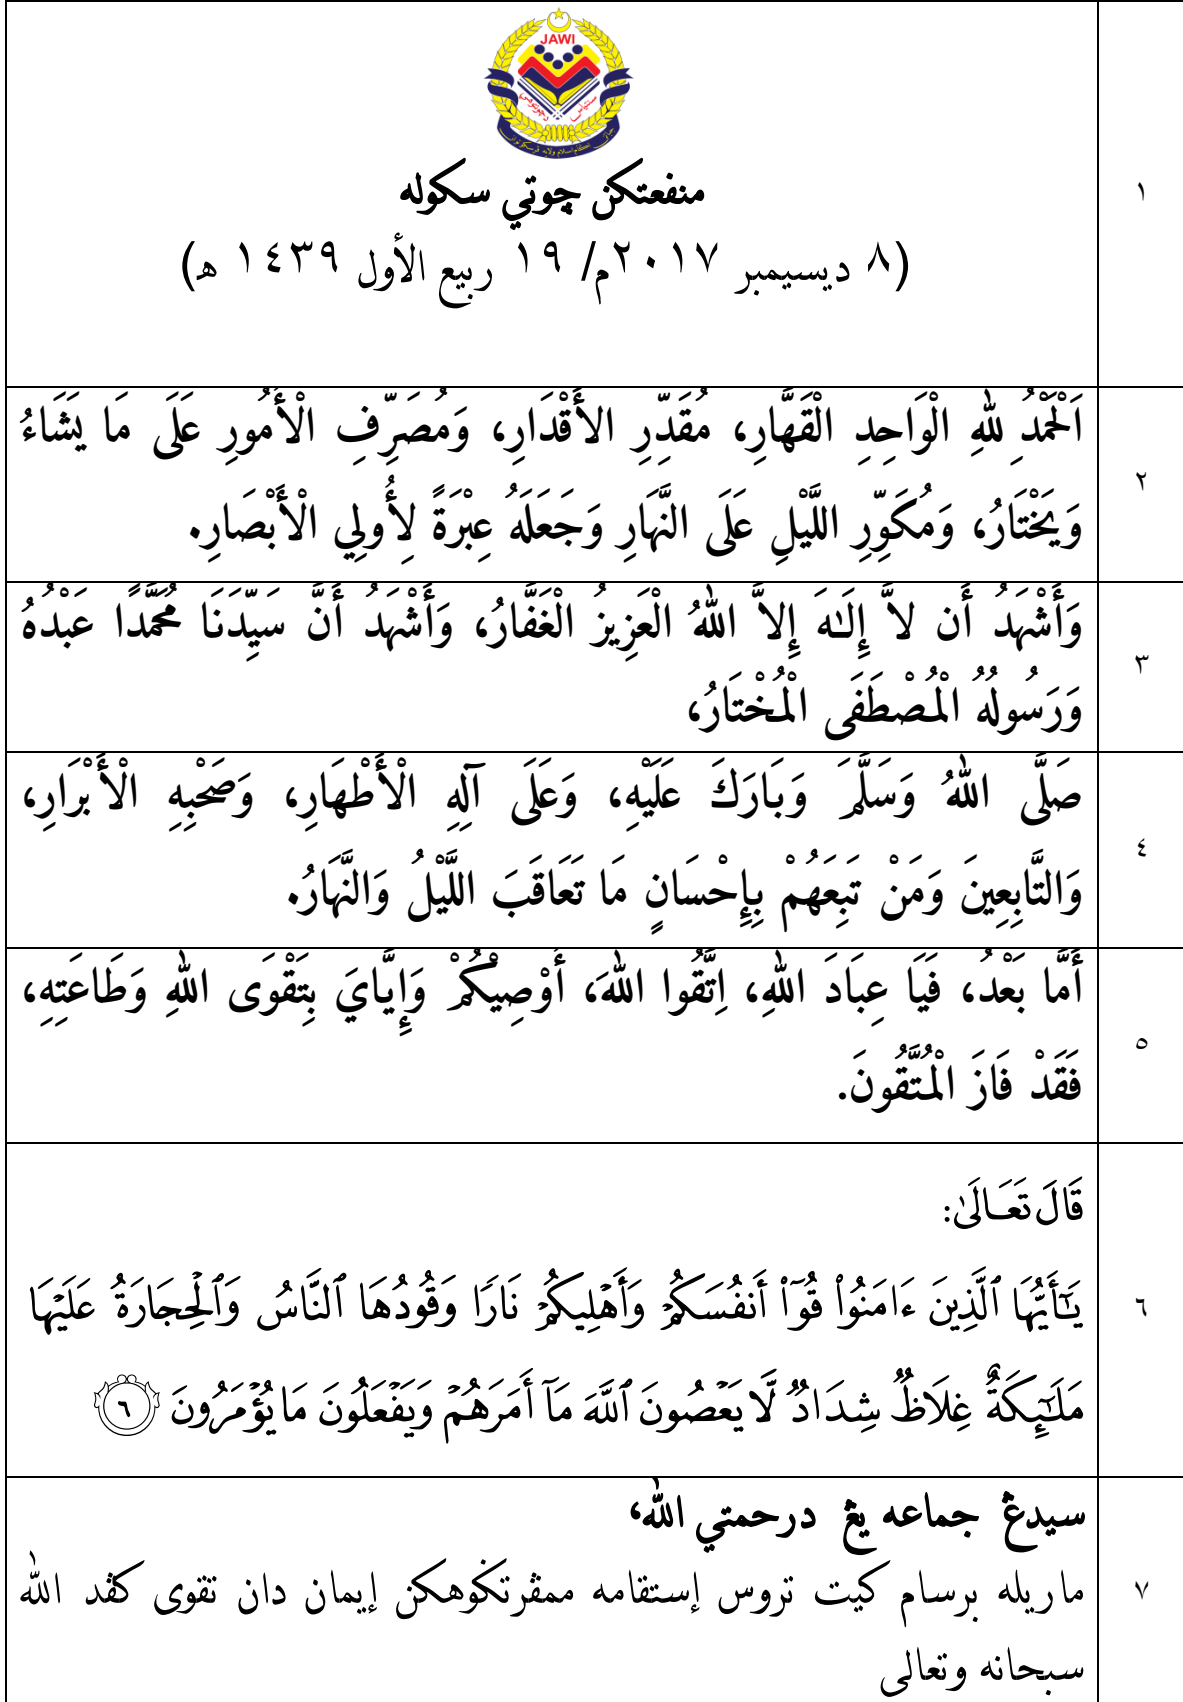 JAWI
منفعتكن چوتي سكوله
(٨ ديسيمبر ٢٠١٧م/ ١٩ ربيع الأول ١٤٣٩ ه)
١
اَلْحَمْدُ لِلّٰهِ الْوَاحِدِ الْقَهَّارِ، مُقَدِّرِ الأَقْدَارِ، وَمُصَرِّفِ الْأُمُورِ عَلَى مَا يَشَاءُ
وَيَخْتَارُ، وَمُكَوِّرِ اللَّيْلِ عَلَى النَّهَارِ وَجَعَلَهُ عِبْرَةً لِأُولِي الْأَبْصَارِ.
٢
وَأَشْهَدُ أَن لاَّ إِلَـٰهَ إِلاَّ اللهُ الْعَزِيزُ الْغَفَّارُ، وَأَشْهَدُ أَنَّ سَيِّدَنَا مُحَمَّدًا عَبْدُهُ
وَرَسُولُهُ الْمُصْطَفَى الْمُخْتَارُ،
٣
صَلَّى اللهُ وَسَلَّمَ وَبَارَكَ عَلَيْهِ، وَعَلَى آلِهِ الْأَطْهَارِ، وَصَحْبِهِ الْأَبْرَارِ،
وَالتَّابِعِينَ وَمَنْ تَبِعَهُمْ بِإِحْسَانٍ مَا تَعَاقَبَ اللَّيْلُ وَالنَّهَارُ.
٤
أَمَّا بَعْدُ، فَيَا عِبَادَ اللهِ، اِتَّقُوا اللهَ، أُوْصِيْكُمْ وَإِيَّايَ بِتَقْوَى اللهِ وَطَاعَتِهِ،
فَقَدْ فَازَ الْمُتَّقُونَ.
٥
قَالَ تَعَالَىٰ:
يَـٰٓأَيُّهَا ٱلَّذِينَ ءَامَنُواْ قُوٓاْ أَنفُسَكُمۡ وَأَهۡلِيكُمۡ نَارٗا وَقُودُهَا ٱلنَّاسُ وَٱلۡحِجَارَةُ عَلَيۡهَا
مَلَـٰٓئِكَةٌ غِلَاظٞ شِدَادٞ لَّا يَعۡصُونَ ٱللَّهَ مَآ أَمَرَهُمۡ وَيَفۡعَلُونَ مَا يُؤۡمَرُونَ ٦
٦
سيدڠ جماعه يڠ درحمتي الله،
ماريله برسام كيت تروس إستقامه ممڤرتݢوهكن إيمان دان تقوى كڤد الله
سبحانه وتعالى
٧